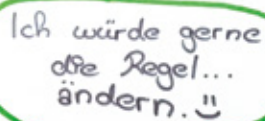 Ich würde gerne
die Regel...
ändern. :)